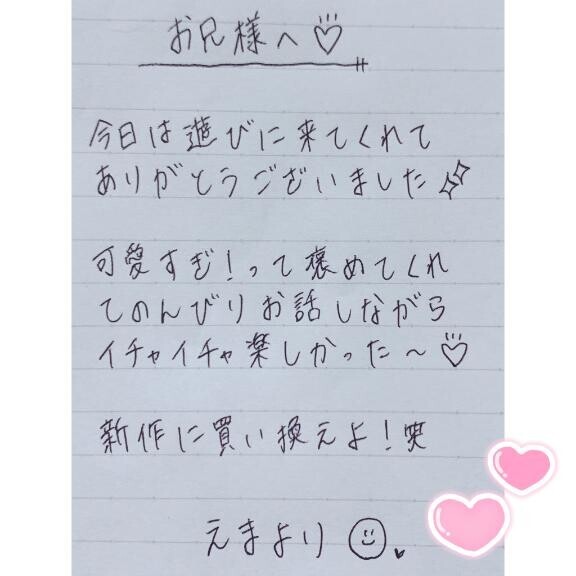 お兄様へ♡
今日は遊びに来てくれて
ありがとうございました✨
可愛すぎ！って褒めてくれ
てのんびりお話しながら
イチャイチャ楽しかった〜♡
新作に買い換えよ！笑
えまより☺♥